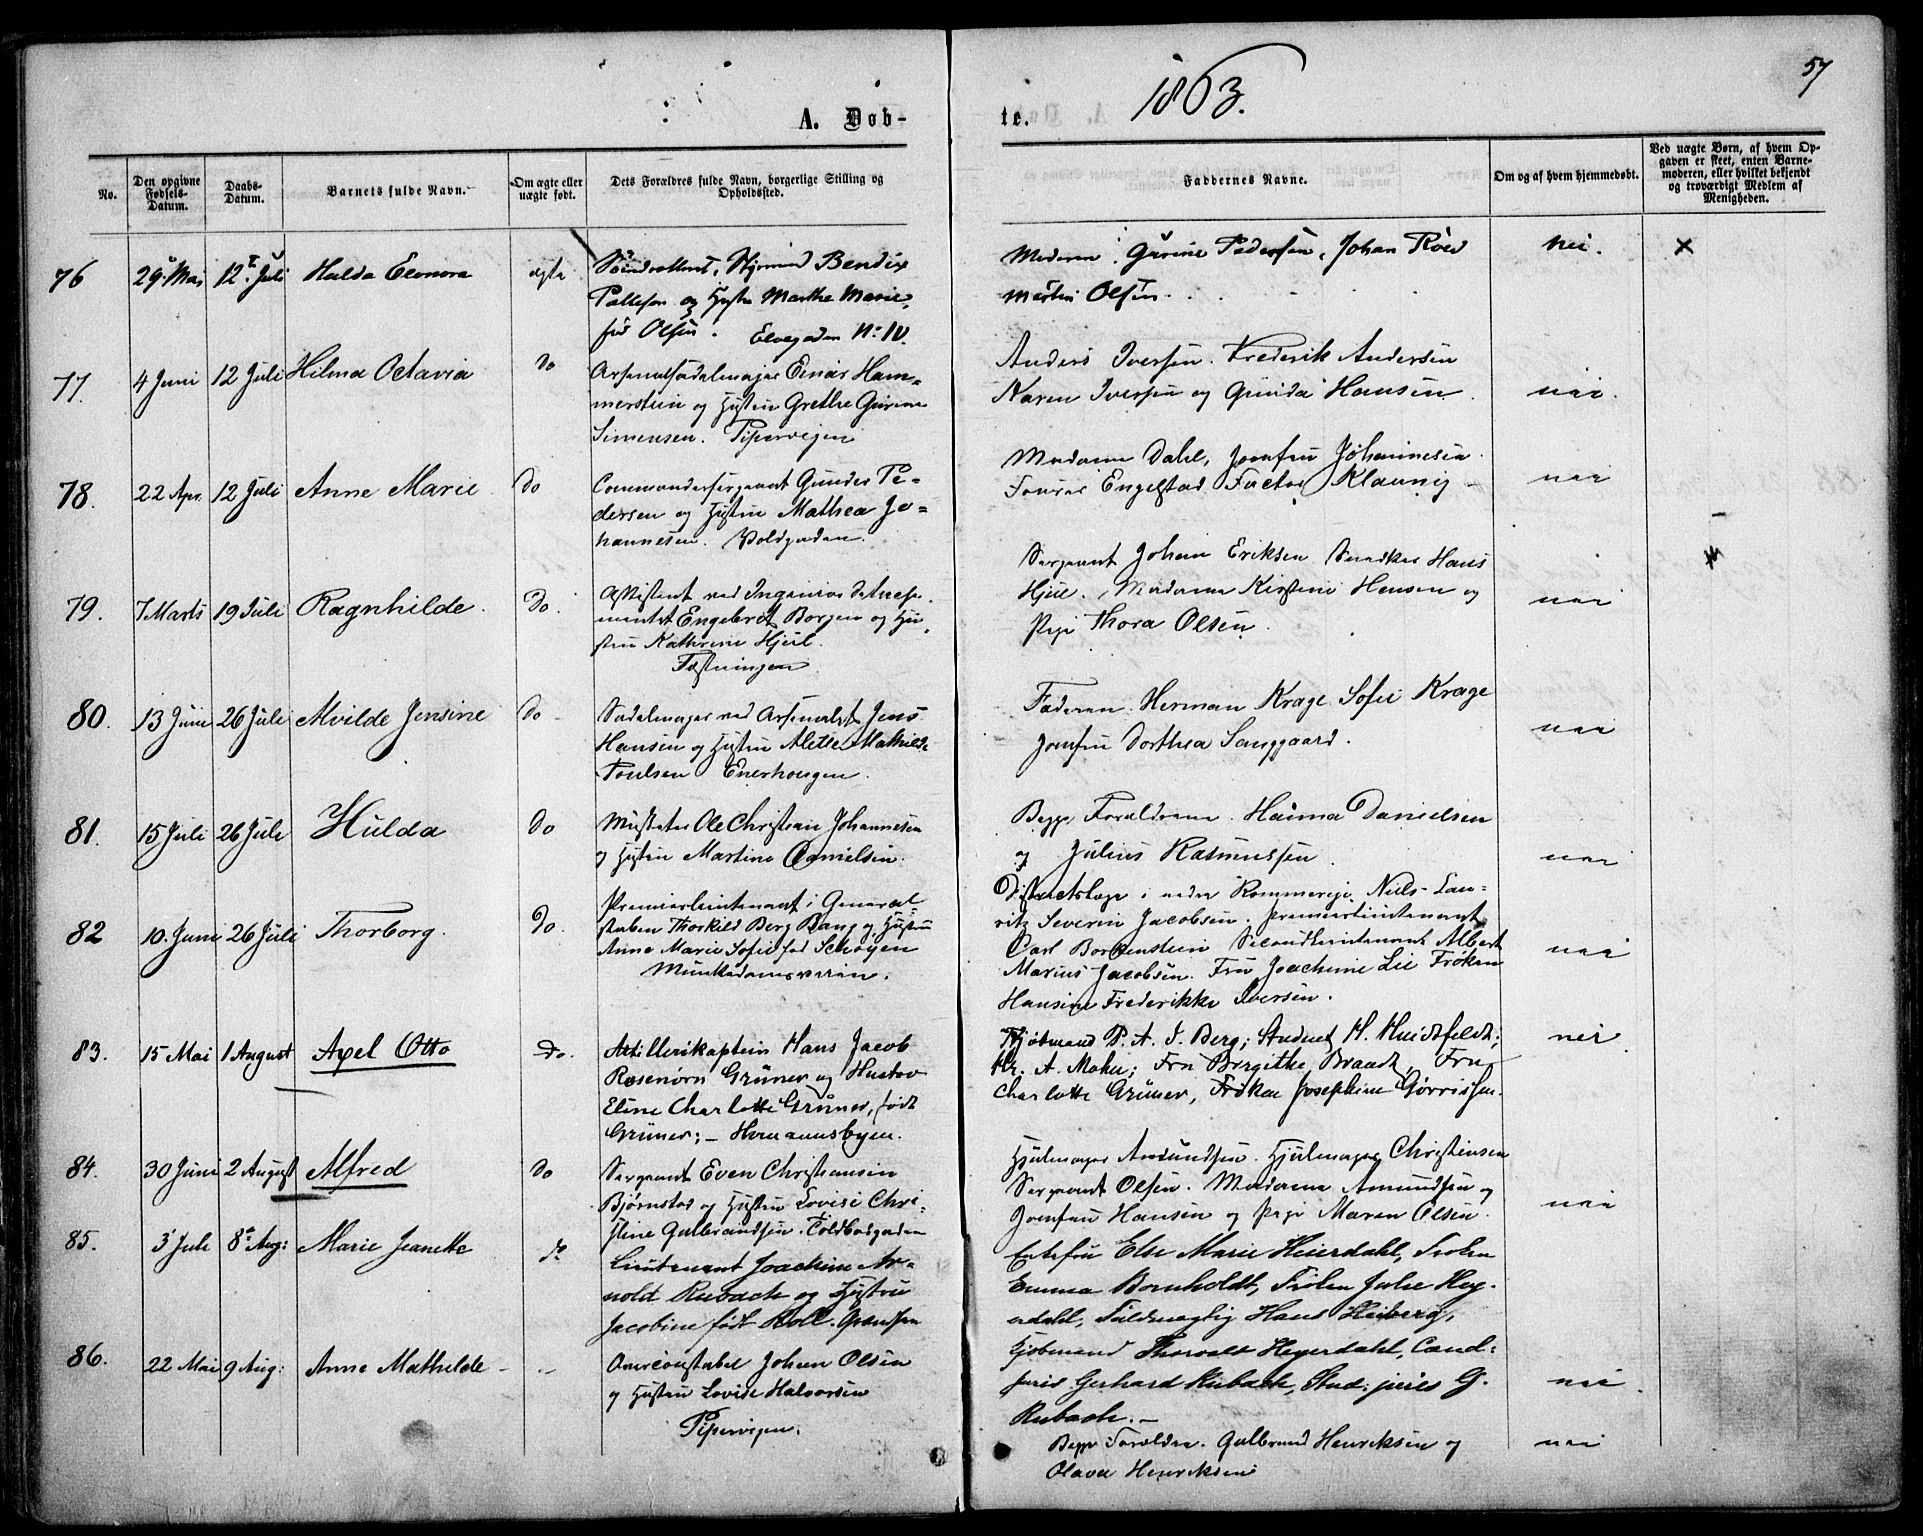 57
1863.
A. Døb-
te.
No.
Den opgivne Fødsels-Datum.
Daabs-Datum.
Barnets fulde Navn.
Om ægte eller uægte født.
Dets Forældres fulde Navn, borgerlige Stilling og Opholdssted.
Faddernes Navne.
Om og af hvem hjemmedøbt.
Ved uægte Børn, af hvem Op-
gaven er skeet, enten Barne-
moderen, eller hvilket bekjendt
og troværdigt Medlem af
Menigheden.
76 29 Mai 12 Juli Hulda Elonora ægte
Bendix
og Hustru Marthe Marie
Olsen. Elvegaden No 10.
Moderen, Gurine Pedersen, Johan Roed
Martin Olsen.
nei. ×
77. 4 Juni 12 Juli Hilma Octavia Do
Arsenalsadelmager Einar Ham-
merstein og Hustru Grethe Gurine
Simensen. Pipervigen
Anders Iversen. Frederik Andersen
Karen Iversen og Gunda Hansen.
nei.
78. 22 Apr. 12 Juli Anne Marie Do
Commandersergeant Gunder Pe-
dersen og Hustru Mathea Jo-
hannesen. Voldgaden.
Madame Dahl, Jomfru Johannesen
Engelstad. Factor Klaunig
nei
79. 7 Marts 19 Juli Ragnhilde. Do.
Assistent ved Ingenieur
Engebret Borgen og Hu-
stru Kathrine Hjul.
Fæstningen.
Sergeant Johan Eriksen Hans
Hjul. Madame Kirstine Hansen og
Pige Thora Olsen.
nei
80. 13 Juni 26 Juli Alvilde Jensine Do
Sadelmager ved Arsenalet Jens
Hansen og Hustru Alette Mathilde
Poulsen Enerhougen.
Faderen. Herman Krage Sofie Krage
Jomfru Dorthea Sanggaard.
nei
81. 15 Juli 26 Juli Hulda Do
Ole Christian Johannesen
og Hustru Martine Danielsen.
Begge Forældrene. Hanna Danielsen
og Julius Rasmussen.
nei
82 10. Juni 26 Juli Thorborg. Do.
Premierlieutenant i General-
staben Thorkild Berg Bang og Hustru
Anne Marie Sofie fød Schøyen
Munkedamsveien.
Districtslæge i nedre Rommerige Niels Lau-
ritz Severin Jacobsen. Premierlieutenant
Carl Borkenstein Secondlieutenant Albert
Marius Jacobsen. Fru Joachime Lie Frøken
Hansine Frederikke Iversen.
nei
83. 15 Mai 1 August Axel Otto Do.
Artillerikaptein Hans Jacob
Rosenørn Grüner og Hustru
Eline Charlotte Grüner, født
Grüner; – Homannsbyen.
Kjøbmand P. A. J. Berg; Student H. Huidtfeldt;
Hr. A. Mohn; Fru Birgithe Brandt, Fru
Charlotte Grüner, Frøken Josephine Gørrissen.
nei.
84. 30 Juni 2 August Alfred Do
Sergeant Even Christiansen
Bjørnstad og Hustru Lovise Chri-
stine Gulbrandsen. Toldbodgaden
Hjulmager Amundsen. Hjulmager Christensen
Sergeant Olsen. Madame Amundsen og
Jomfru Hansen og Pige Maren Olsen.
nei
85. 3 Juli 8 Aug: Marie Jeanette do
Lieutenant Joachim Ar-
nold Rubach og Hustru
Jacobine født Holl. Grændsen
Enkefru Else Marie Heierdahl, Frøken
Emma Bornholdt, Frøken Julie Hey-
erdahl, Fuldmægtig Hans Heiberg,
Kjøbmand Thorvald Heyerdahl, Cand:
juris Gerhard Rubach, Stud: juris G.
Rubach. –
nei.
86. 22 Mai 9 Aug: Anne Mathilde – –
Overconstabel Johan Olsen
og Hustru Lovise Halvorsen
Pipervigen.
Begge Forældre. Gulbrand Henriksen og
Olava Henriksen
nei